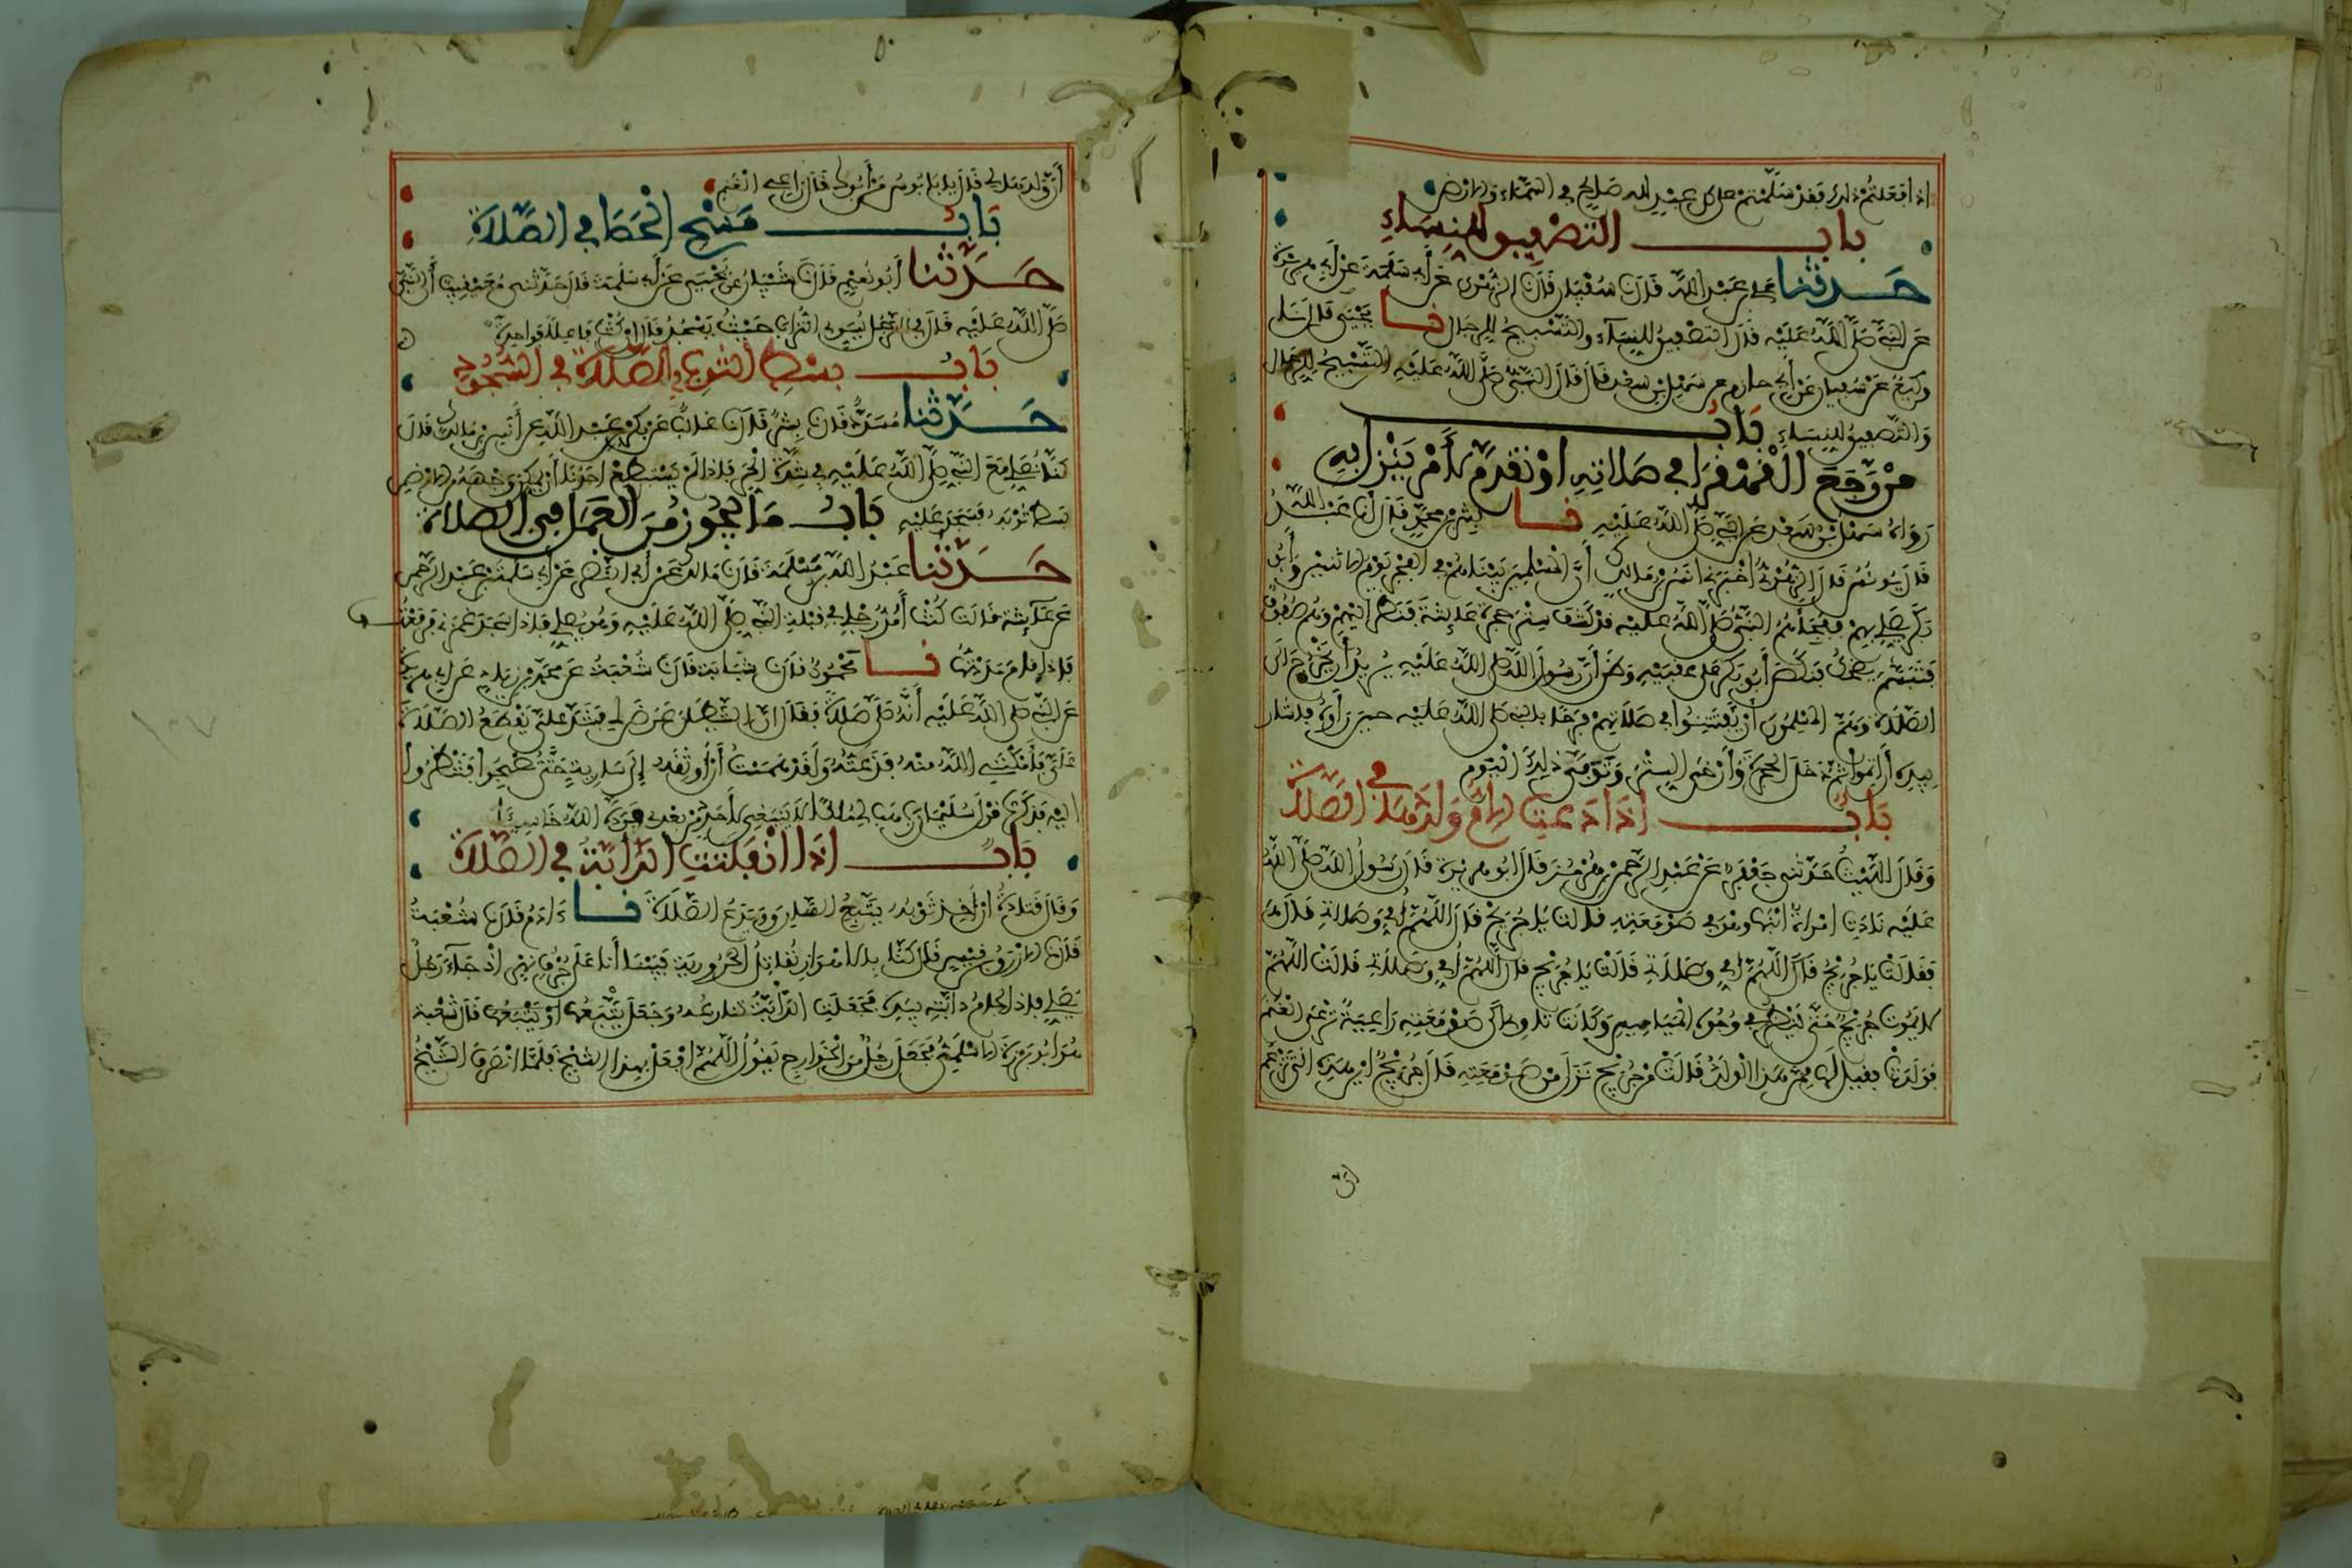 اذا فعلتم ذلك فقد سلمتم على كل عبد لله صالح في السماء والارض
باب التصفيق للنساء
حدثنا علي بن عبد الله قال نا سفيان قال نا الزهري عن أبي سلمة عن أبي هريرة
عن النبي صلى الله عليه قال التصفيق للنساء والتسبيح للرجال نا يحيى قال نا
وكيع عن سفيان عن أبي حازم عن سهل بن سعد قال قال النبي صلى الله عليه التسبيح للرجال
والتصفيق للنساء باب
من رجع القهقرا في صلاته او تقدم لأمر ينزل به
رواه سهل بن سعد عن النبي صلى الله عليه نا بشر بن محمد قال انا عبد الله
قال يونس قال الزهري أخبرني انس بن مالك أن المسلمين بينا هم في الفجر يوم الاثنين وأبو
بكر يصلي بهم ففجأهم النبي صلى الله عليه قد كشف ستر حجرة عائشة فنظر اليهم وهم صفوف
فتبسم يضحك فنكص أبو بكر على عقبيه وظن أن رسول الله صلى الله عليه يريد أن يخرج الى
الصلاة وهم المسلمون أن يفتتنوا في صلاتهم فرحا بالنبي صلى الله عليه حين رأوه فاشار
بيده أن اتموا ثم دخل الحجرة وأرخى الستر وتوفي ذلك اليوم
باب اذا دعت الام ولدها في الصلاة
وقال الليث حدثني جعفر عن عبد الرحمن بن هرمز قال قال ابو هريرة قال رسول الله صلى الله
عليه نادت امرأة ابنها وهو في صومعته قالت يا جريج قال اللهم أمي وصلاتي قال
فقالت يا جريج قال اللهم أمي وصلاتي قالت يا جريج قال اللهم أمي وصلاتي قالت اللهم
لا يموت جريج حتى ينظر في وجوه المياميس وكانت تاوي الى صومعته راعية ترعى الغنم
فولدت فقيل لها ممن هذا الولد قالت من جريج نزل من صومعته قال جريج اين هذه التي تزعم
أن ولدها لي قال يا بابوس من أبوك قال راعي الغنم
باب مسح الحصا في الصلاة
حدثنا أبو نعيم قال نا شيبان عن يحيى عن أبي سلمة قال حدثني معيقيب أن النبي
صلى الله عليه قال في الرجل يسوي التراب حيث يسجد قال ان كنت فاعلا فواحدة
باب بسط الثوب في الصلاة في السجود
حدثنا مسدد قال نا بشر قال نا غالب عن بكر بن عبد الله عن أنس بن مالك قال
كنا نصلي مع النبي صلى الله عليه في شدة الحر فاذا لم يستطع احدنا أن يمكن وجهه من الارض
بسط ثوبه فسجد عليه باب ما يجوز من العمل في الصلاة
حدثنا عبد الله بن مسلمة قال نا مالك عن أبي النضر عن أبي سلمة بن عبد الرحمن
عن عائشة قالت كنت أمد رجلي في قبلة النبي صلى الله عليه وهو يصلي فاذا سجد غمزني فرفعتها
فاذا قام مددتها نا محمود قال نا شبابة قال نا شعبة عن محمد بن زياد عن أبي هريرة
عن النبي صلى الله عليه أنه صلى صلاة فقال ان الشيطان عرض لي فشد علي يقطع الصلاة
علي فأمكنني الله منه فذعته ولقد هممت أن أوثقه إلى سارية حتى تصبحوا فتنظروا
اليه فذكرت قول سليمان رب هب لي ملكا لا ينبغي لأحد من بعدي فرده الله خاسئا
باب اذا انفلتت الدابة في الصلاة
وقال قتادة ان أخذ ثوبه يتبع السارق ويدع الصلاة نا ءادم قال نا شعبة
قال نا الازرق بن قيس قال كنا بالاهواز نقاتل الحرورية فبينا أنا على جرف نهر اذ جاء رجل
يصلي فاذا لجام دابته بيده فجعلت الدابة تنازعه وجعل يتبعها او يتبعها قال شعبة
هو ابو برزة الاسلمي فجعل رجل من الخوارج يقول اللهم افعل بهذا الشيخ فلما انصرف الشيخ